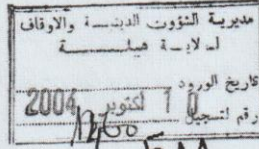 مديرية الشؤون الدينيـــة والاوقاف
لـولايــة ميلـــــة
تاريخ الورود
10 اكتوبر 2004
رقم التسجيل